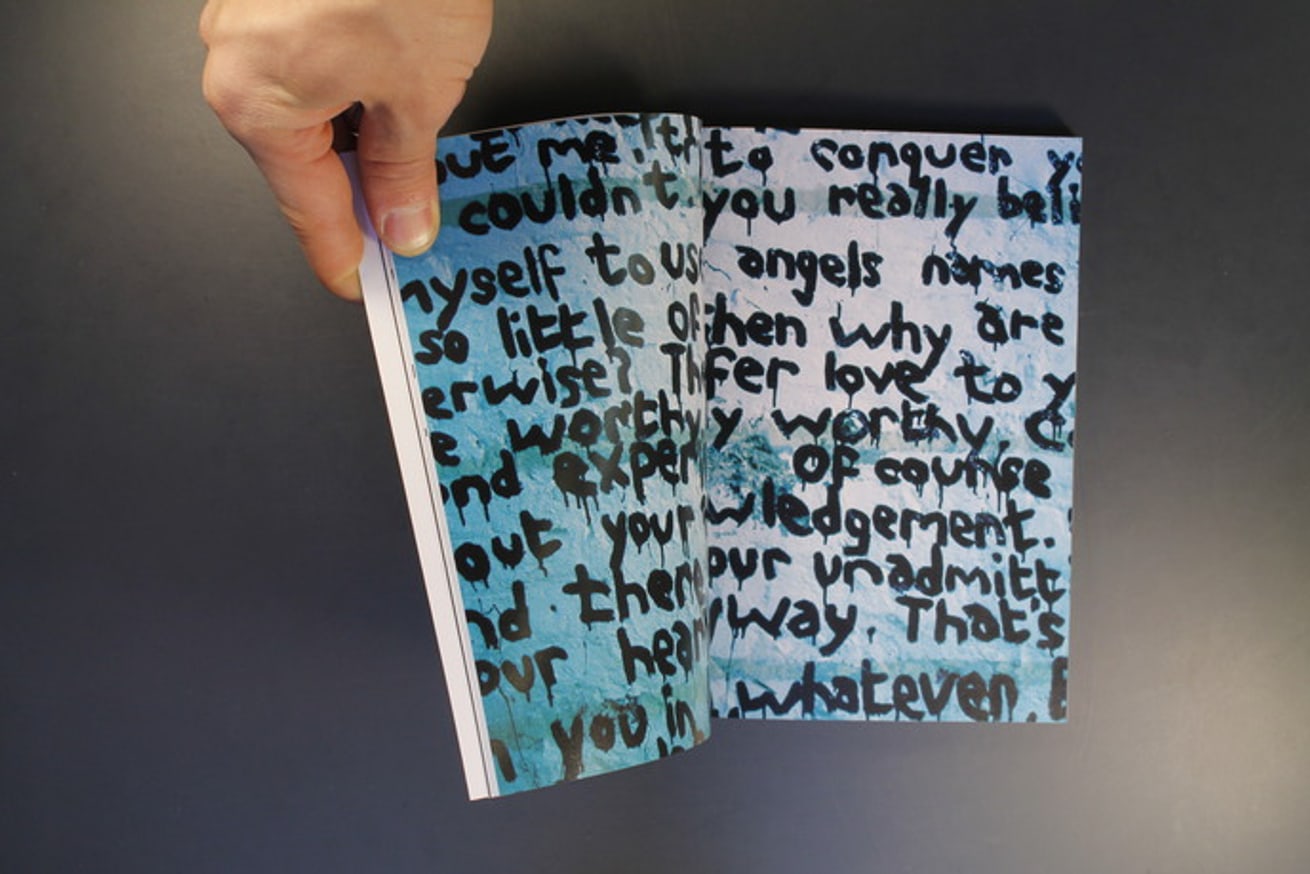 out me.
couldn't.
myself to us
so little of
erwise? Th
e worthy
nd exper
out your
nd. there
our hear
you in
to conquer yo
you really beli
angels names
then why are
fer love to y
y worthy. C
Of course
wledgement.
our unadmitt
yway. That's
whatever. B